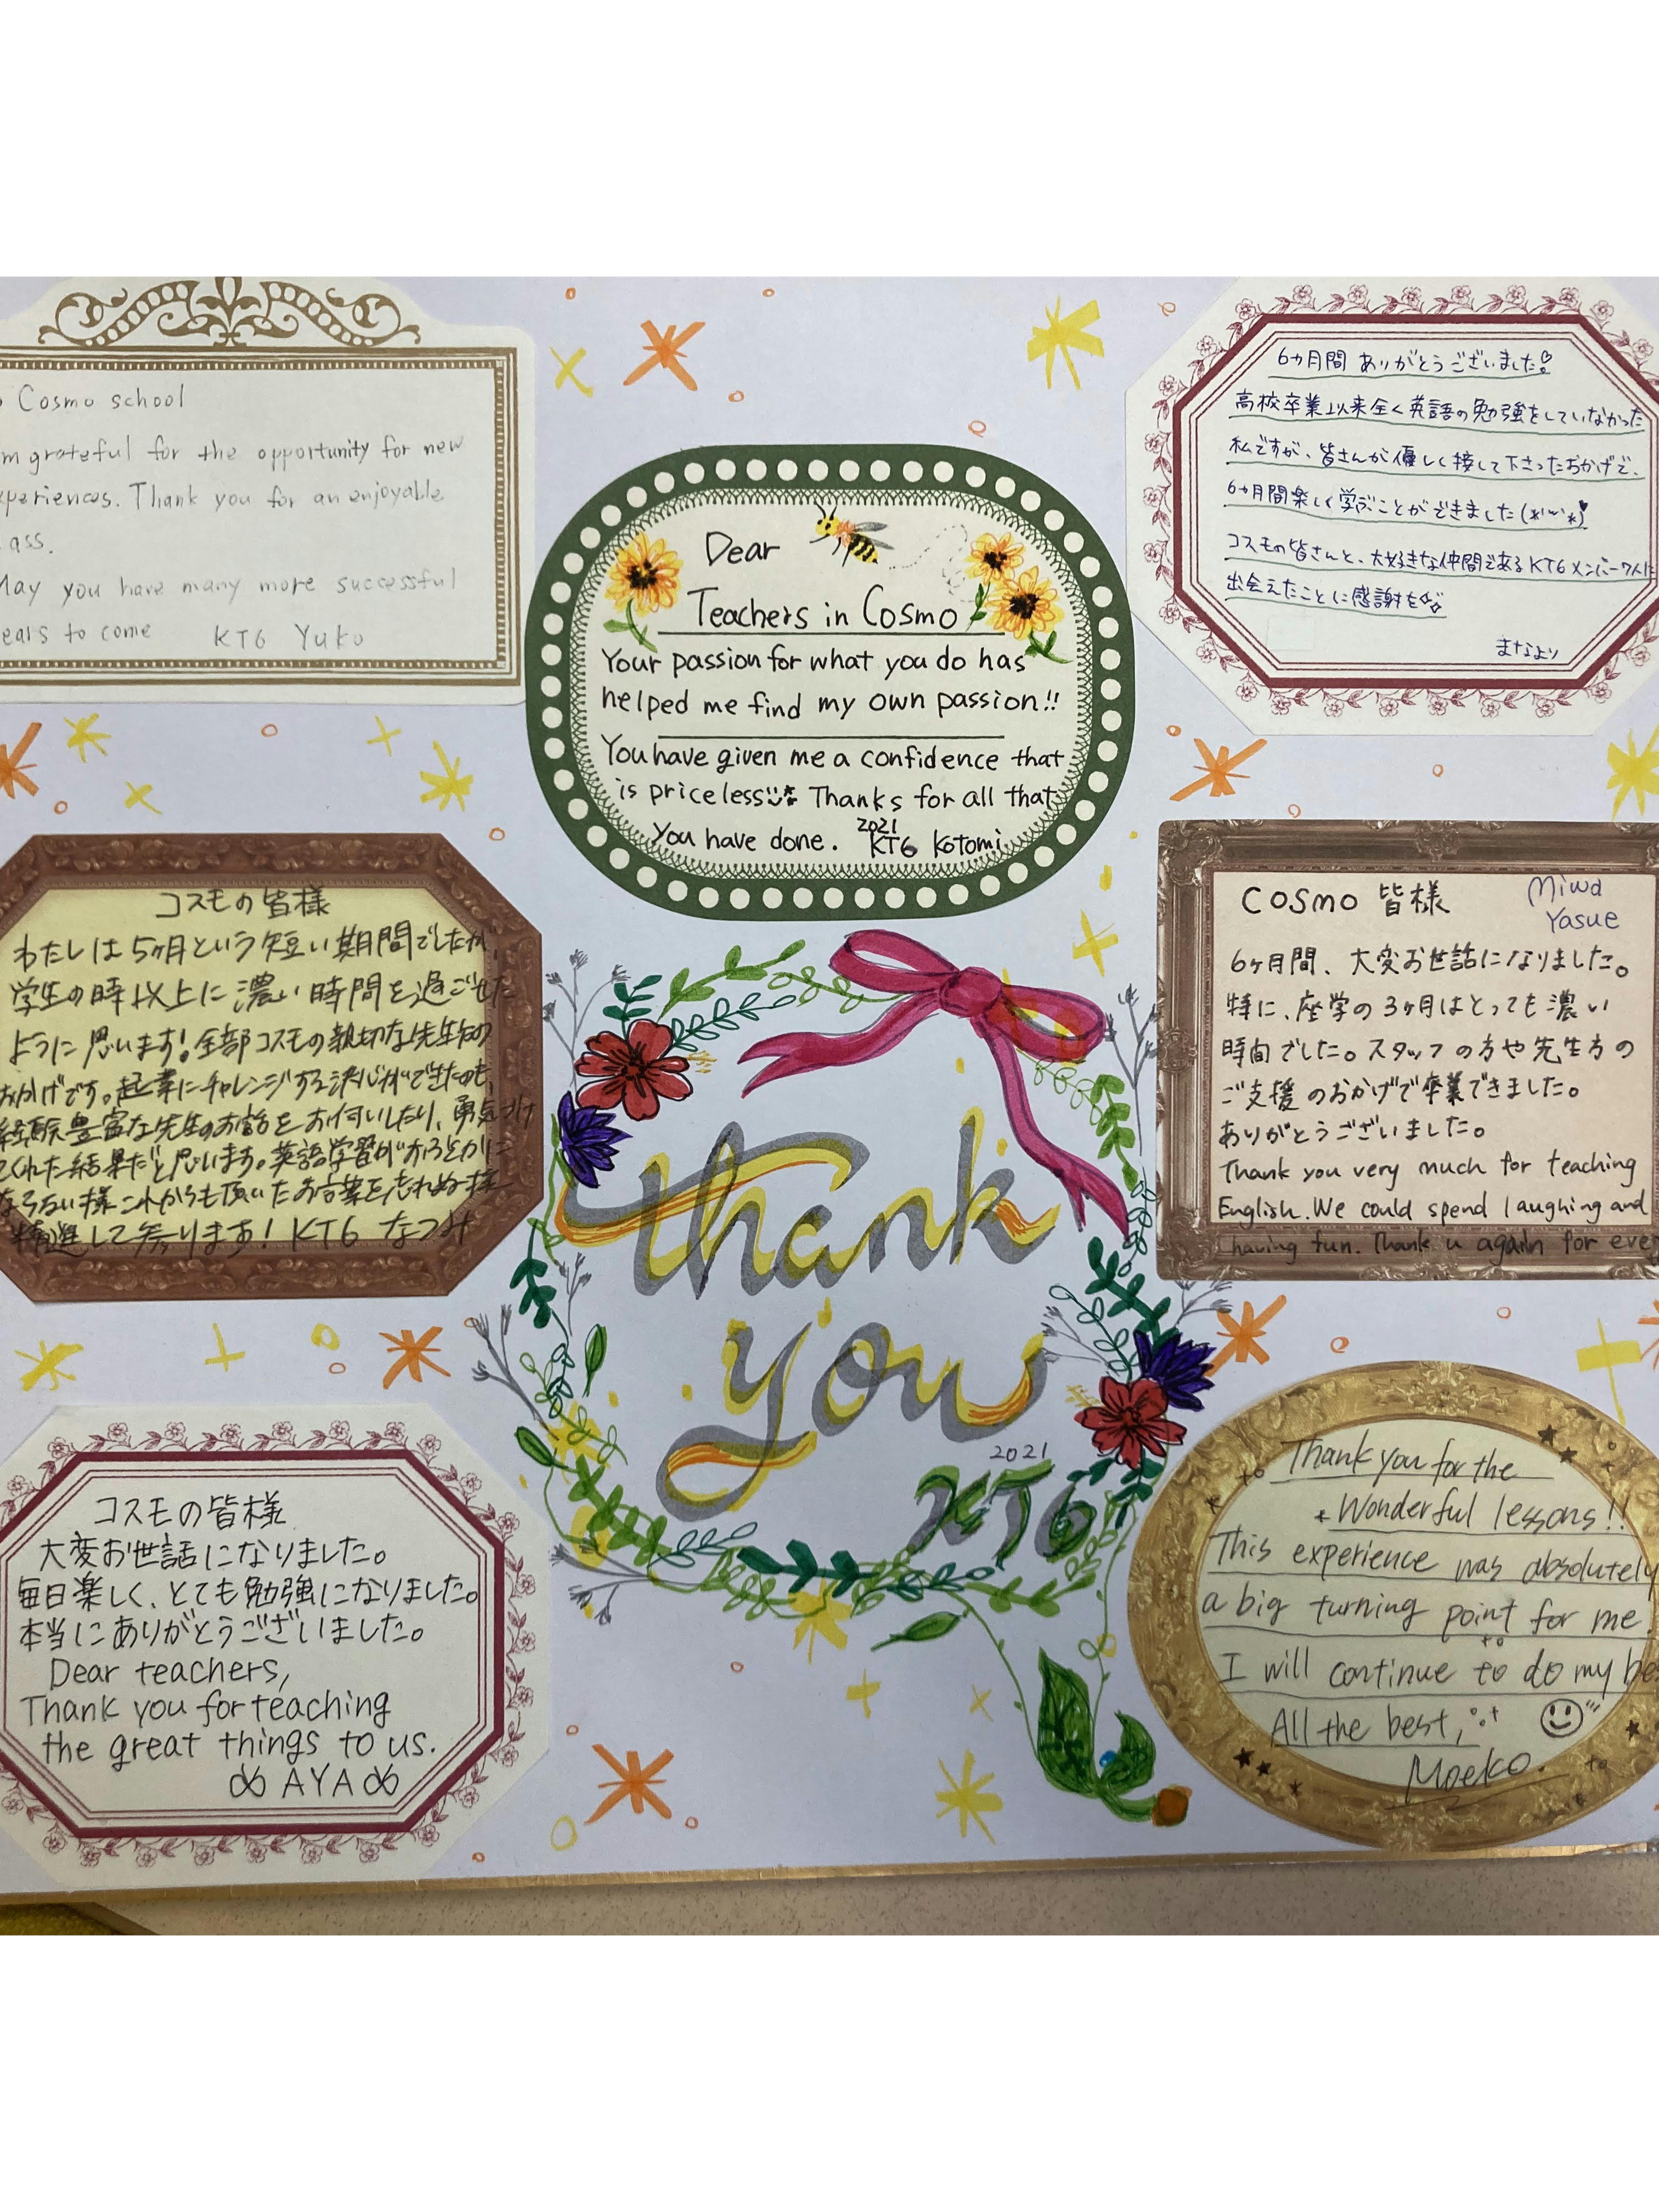 Cosmo school
m grateful for the opportunity for new
xperiences. Thank you for an enjoyable
ass.
May you have many more successful
ears to come KT6 Yuko
Dear
Teachers in Cosmo
Your passion for what you do has
helped me find my own passion!!
You have given me a confidence that
is priceless Thanks for all that
you have done. 2021 KT6 Kotomi
6ヵ月間 ありがとうございました
高校卒業以来全く英語の勉強をしていなかった
私ですが、皆さんが優しく接して下さったおかげで、
6ヵ月間楽しく学ぶことができました(*^-^*)
コスモの皆さんと、大好きな仲間であるKT6メンバー7人に
出会えたことに感謝を
まなより
コスモの皆様
わたしは5ヶ月という短い期間でしたが、
学生の時以上に濃い時間を過ごせた
ように思います!全部コスモの親切な先生方の
おかげです。起業にチャレンジする決心ができたのも、
経験豊富な先生のお話をお伺いしたり、勇気づけ
てくれた結果だと思います。英語学習がおろそかに
ならない様これからも頂いたお言葉を忘れぬ様
精進して参ります! KT6 なつみ
Cosmo 皆様 Miwa
Yasue
6ヶ月間、大変お世話になりました。
特に、座学の3ヶ月はとっても濃い
時間でした。スタッフの方や先生方の
ご支援のおかげで卒業できました。
ありがとうございました。
Thank you very much for teaching
English. We could spend laughing and
having fun. Thank u again for eve
thank
you
2021
KT6
コスモの皆様
大変お世話になりました。
毎日楽しく、とても勉強になりました。
本当にありがとうございました。
Dear teachers,
Thank you for teaching
the great things to us.
AYA
Thank you for the
Wonderful lessons!!
This experience was absolutely
a big turning point for me.
I will continue to do my be
All the best,
Moeko.